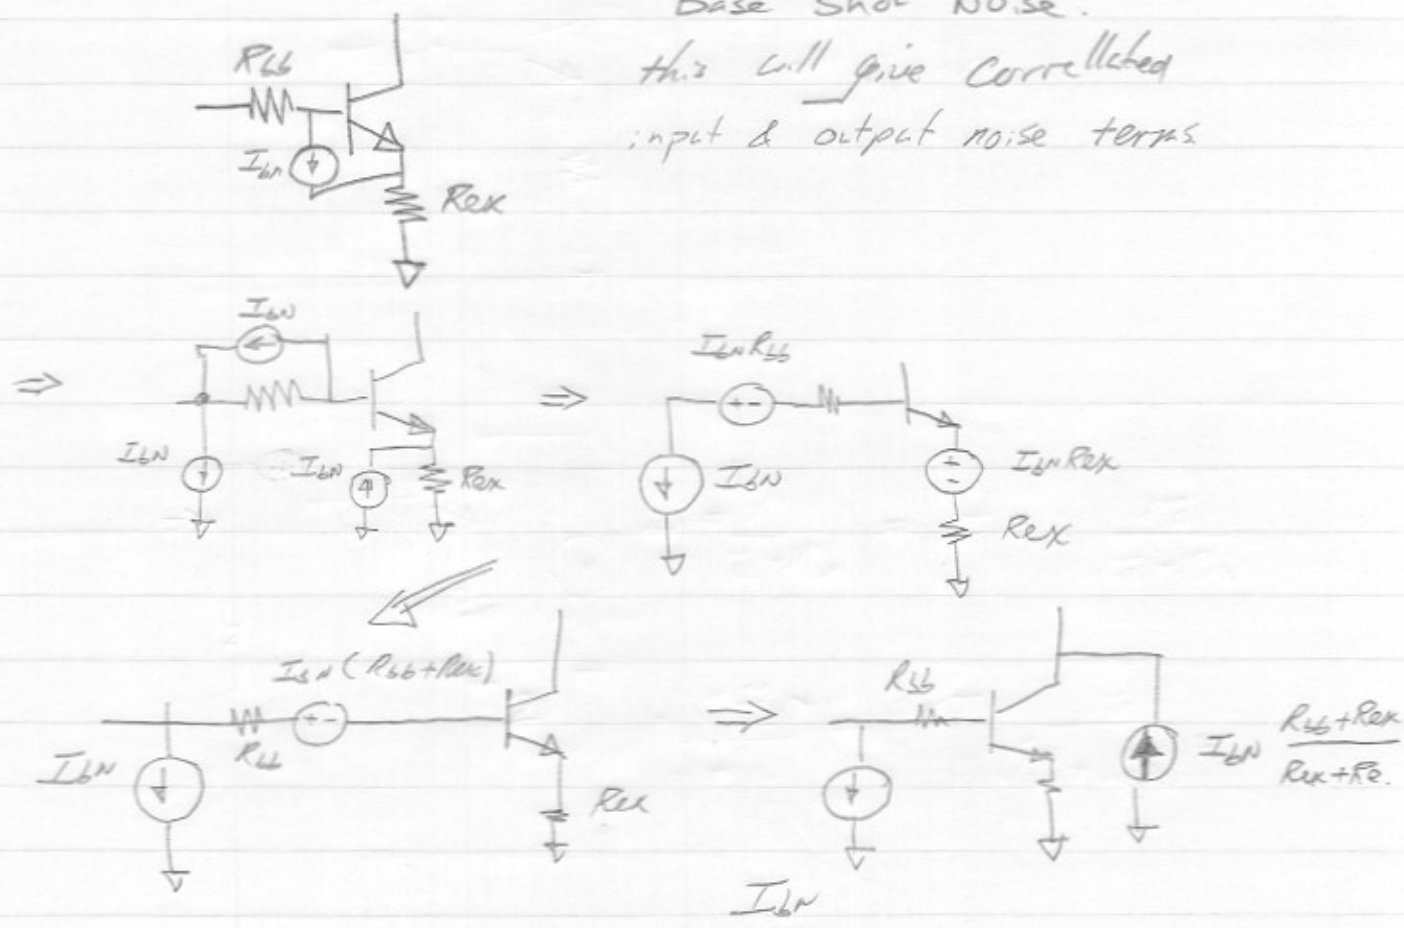 Base Shot Noise.
this will give Correllated
input & output noise terms
Rbb
Ibn
Rex
IbN
IbN
IbN
Rex
IbNRbb
IbN
IbNRex
Rex
IbN(Rbb+Rex)
Rbb
IbN
Rex
Rbb
IbN
Rbb+Rex
Rex+Re.
IbN